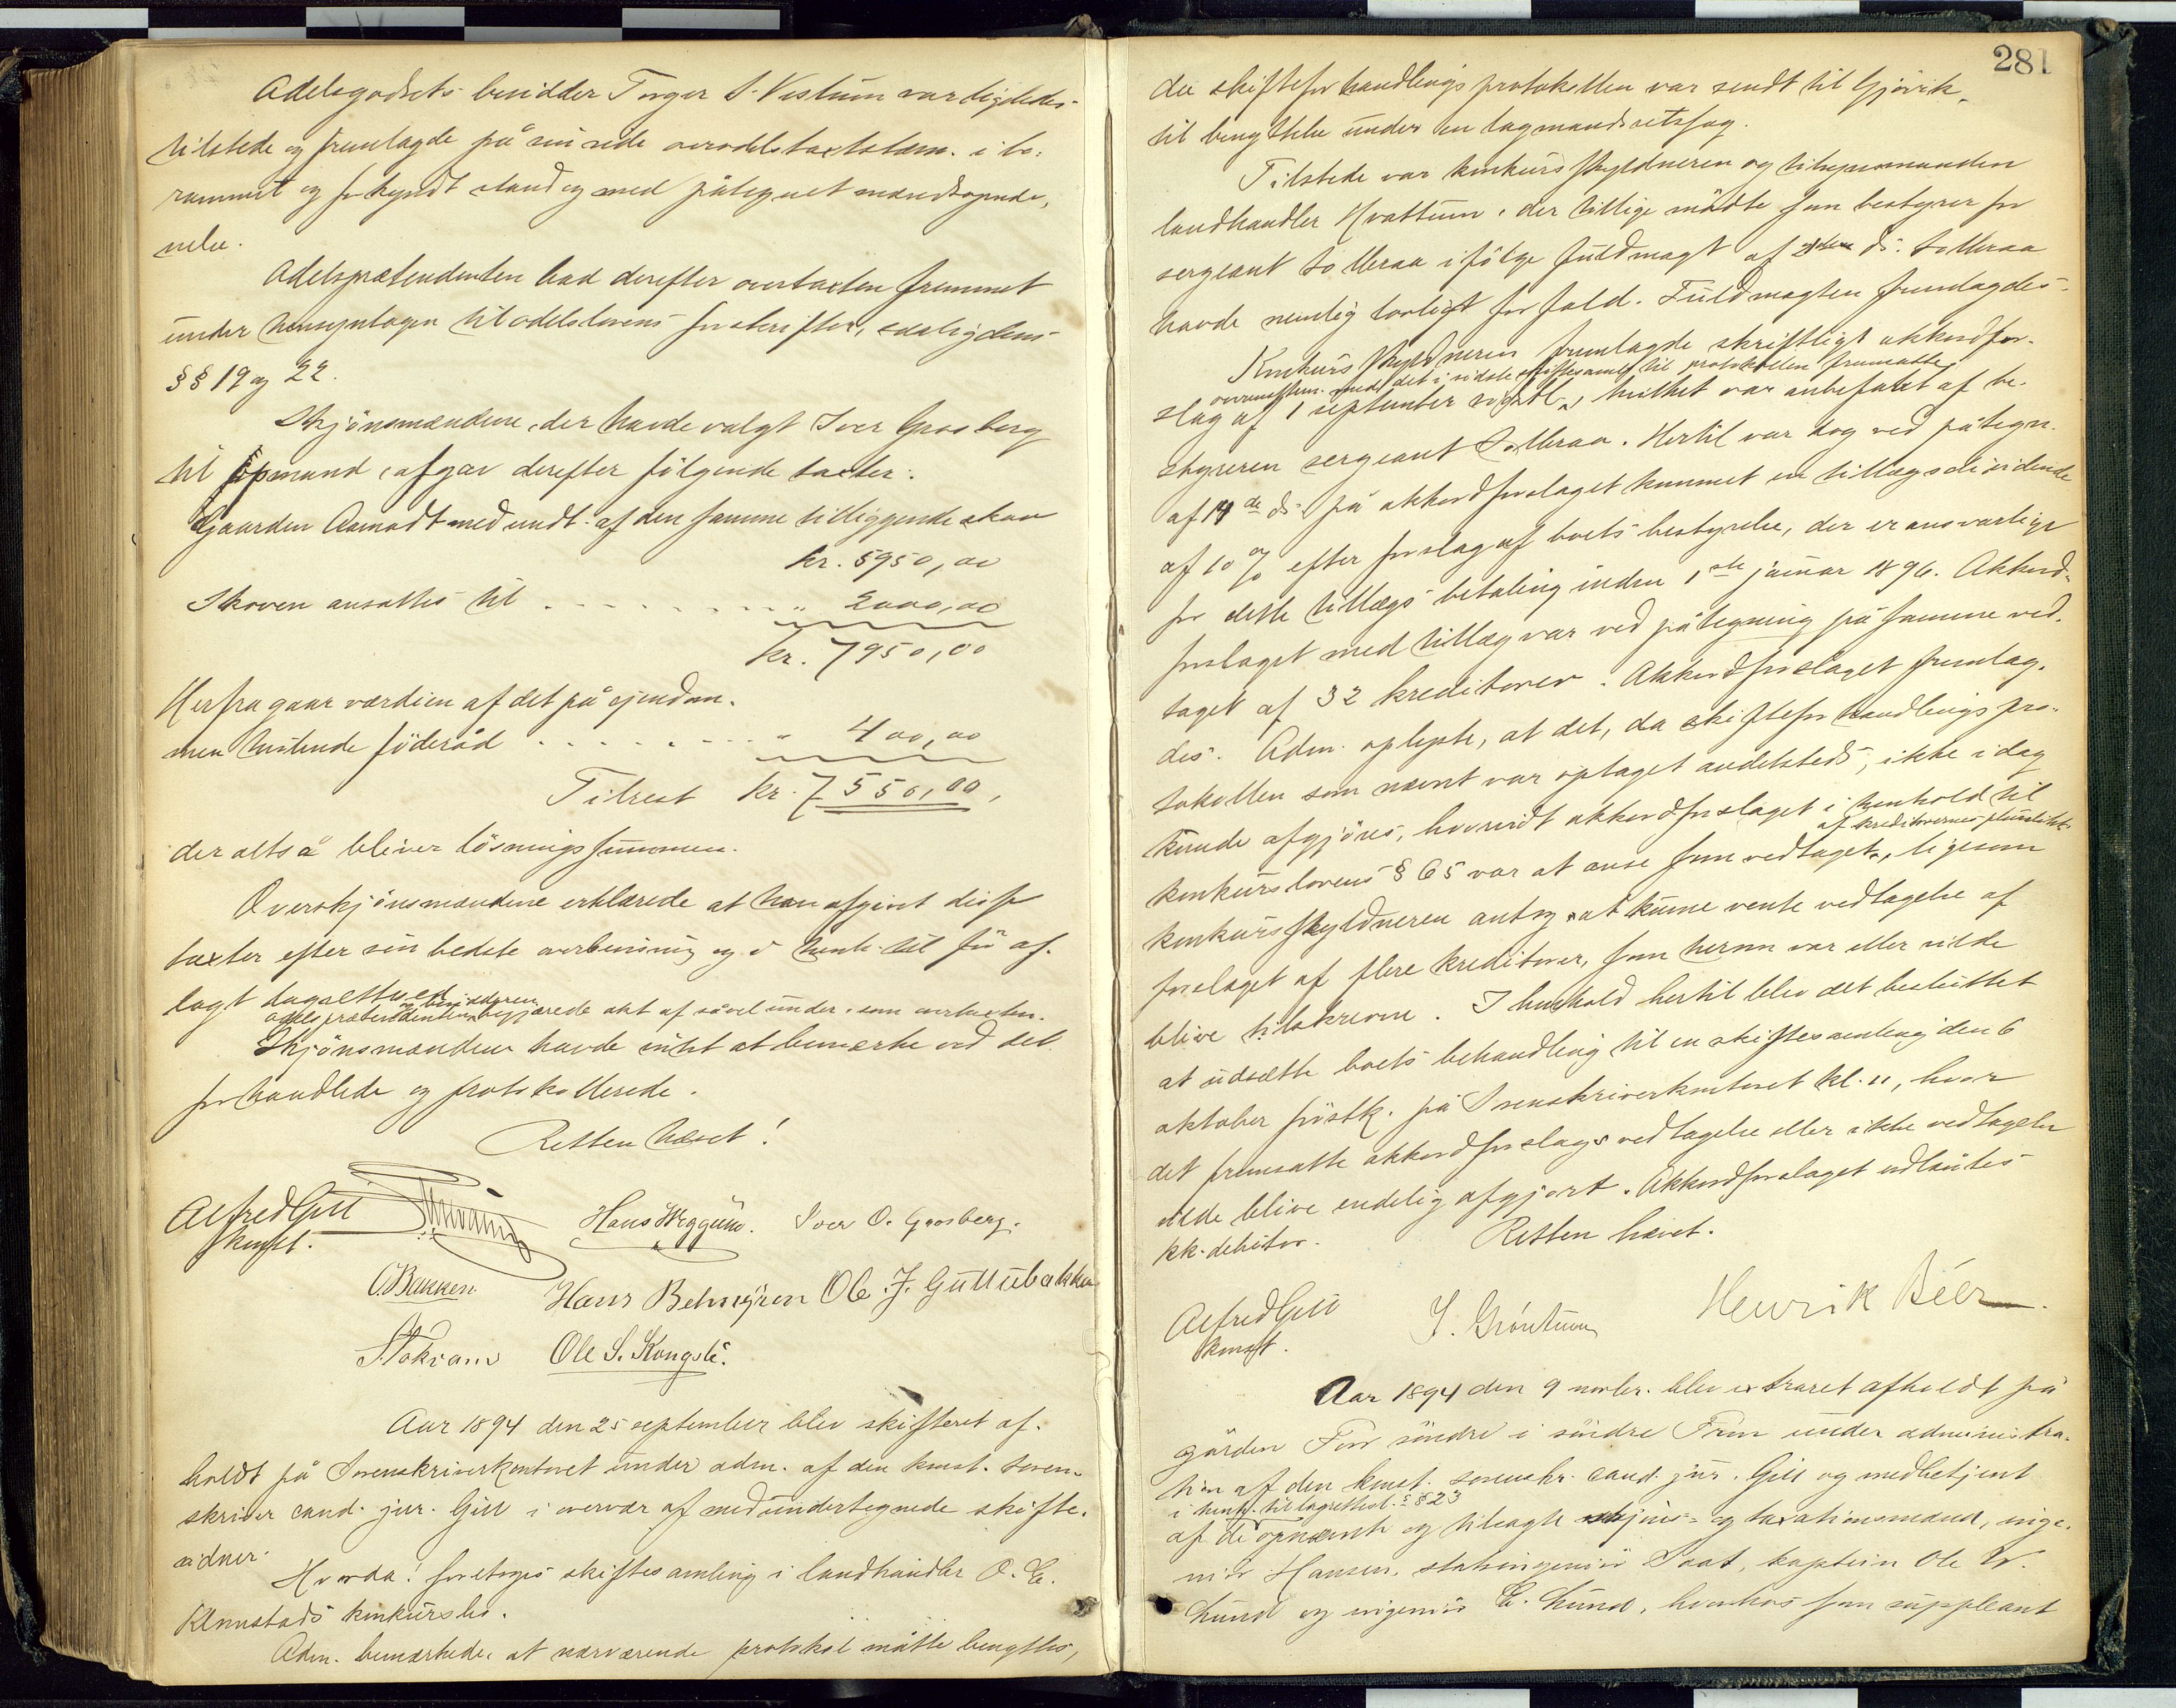 Odelsgodsets besidder Torger S. Vestum var ligeledes
tilstede og fremlagde på sin side overodelstaxtstævn. i be-
rammet og forkyndt stand og med påtegnet mændsopnæv-
nelse.
Odelsprætendenten bad derefter overtaxten fremmet
under hensyntagen til odelslovens forskrifter, særlig dens
§§ 19 og 22.
Skjönsmændene, der havde valgt Iver Grosberg
til opmand, afgav derefter fölgende taxter:
Gaarden Aamodt med undt. af den samme tilliggende skov
kr. 5950,00
Skoven ansattes til . . . . . . . . . " 2000,00
kr. 7950,00
Herfra gaar værdien af det på ejendom-
men hvilende föderåd . . . . . . . . " 400,00
Tilrest kr. 7550,00,
der altså bliver lösningssummen.
Overskjönsmændene erklærede at have afgivet disse
taxter efter sin bedste overbevisning og i henh. til för af-
lagt lagretteed.
Odelsprætendenten og besidderen begjærede akt af såvel under- som overtaxten.
Skjönsmændene havde intet at bemærke ved det
forhandlede og protokollerede.
Retten hævet!
Alfred Gill
konst.
Hans Væggum. Iver O. Grosberg.
O. Bakken. Hans Behmgren Ole J. Guttubakken
Ole S. Kongsli.
Aar 1894 den 25 september blev skifteret af-
holdt på Sorenskriverkontoret under adm. af den konst. soren-
skriver cand. jur. Gill i overvær af medundertegnede skifte-
vidner.
Hvorda! foretoges skiftesamling i landhandler O. E.
Kannstads konkursbo.
Adm. bemærkede, at nærværende protokol måtte benyttes,
281
da skifteforhandlingsprotokollen var sendt til Gjövik
til benyttelse under en lagmandsretssag.
Tilstede var konkursskyldneren og tilsynsmanden
landhandler Hvattum, der tillige mödte som bestyrer for
sergeant Solleraa ifölge fuldmagt af ds. Solleraa
havde nemlig lovligt forfald. Fuldmagten fremlagdes.
Konkursskyldneren fremlagde skriftligt akkordfor-
overensstem. med det i sidste skiftesamling til protokollen fremsatte
slag af 1 september sidstl., hvilket var anbefalet af be-
styreren sergeant Solleraa. Hertil var dog ved påtegn.
af 14de ds. på akkordforslaget kommet en tillægsdividende
af 10 % efter forslag af boets bestyrelse, der er ansvarlige
for dette tillægs betaling inden 1ste januar 1896. Akkord-
forslaget med tillæg var ved påtegning på samme ved-
taget af 32 kreditorer. Akkordforslaget fremlag-
des. Adm. oplyste, at det, da skifteforhandlingspro-
tokollen som nævnt var optaget andetsteds, ikke idag
kunde afgjöres, hvorvidt akkordforslaget i henhold til
af kreditorernes pluralitet
konkurslovens § 65 var at anse som vedtaget, ligesom
konkursskyldneren antog at kunne vente vedtagelse af
forslaget af flere kreditorer, som herom var eller vilde
blive tilskrevne. I henhold hertil blev det besluttet
at udsætte boets behandling til en skiftesamling den 6
oktober förstk. på Sorenskriverkontoret kl. 11, hvor
det fremsatte akkordforslags vedtagelse eller ikke vedtagelse
vilde blive endelig afgjort. Akkordforslaget udlåntes
kk. debitor. Retten hævet.
Alfred Gill
konst. S. Gröntum Henrik Beer.
Aar 1894 den 9 novbr. blev extraret afholdt på
gården Fow söndre i söndre Fron under administra-
tion af den konst. sorenskr. cand. jur. Gill og medbetjent
i henh. til lagrettesl. §§ 23
af de opnævnte og tilsagte skjöns- og taxationsmænd, inge-
niör Hansen, statsingeniör Saat, kaptein Ole W.
Lund og ingeniör C. Lund, hvorhos som suppleant